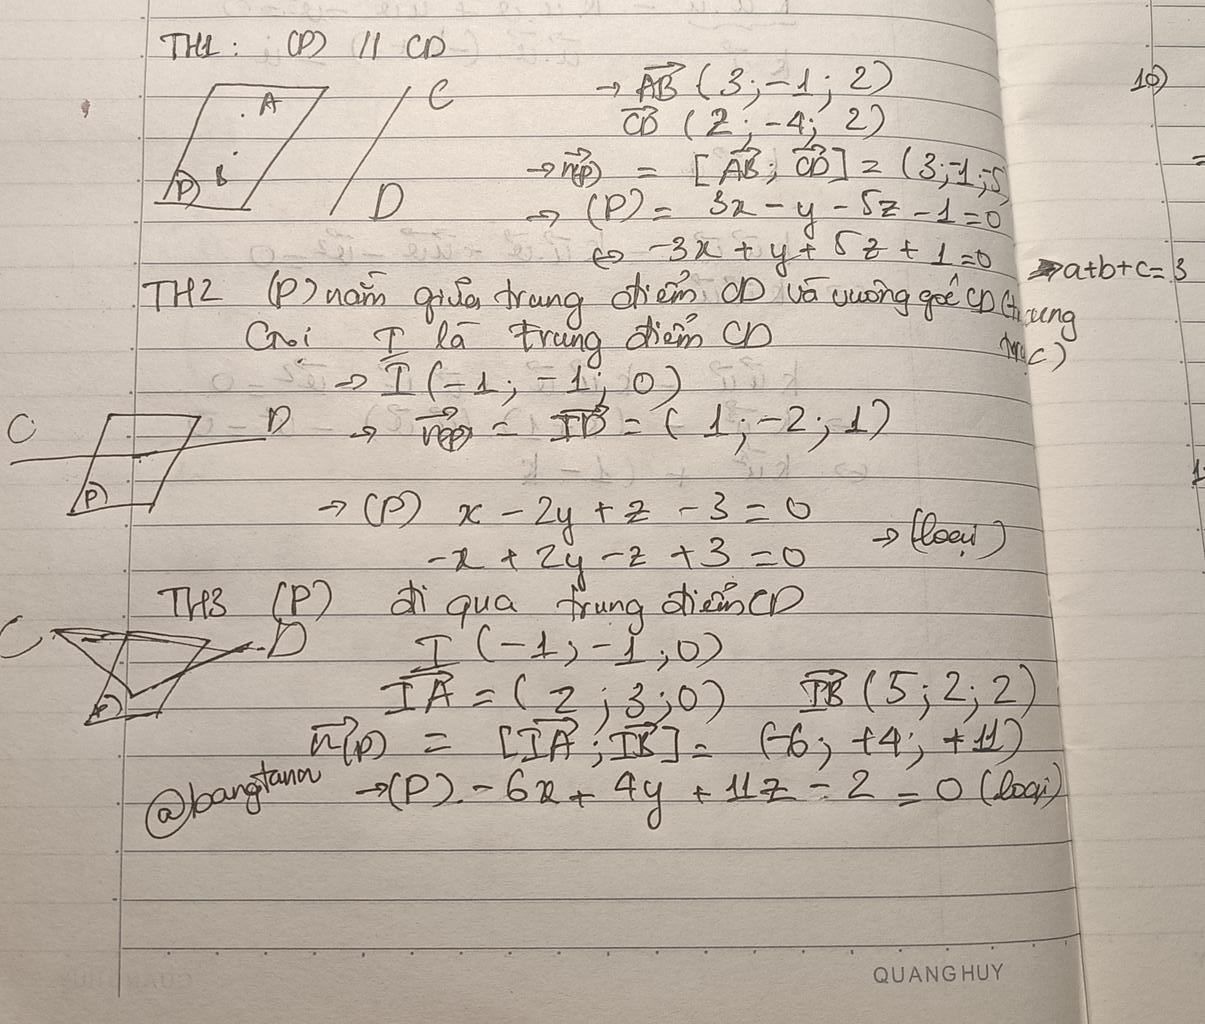 TH1: (P) // CD
A
C
B
(P)
D
→ AB (3; -1; 2)
CD (2; -4; 2)
→ n(p) = [AB; CD] = (3; -1; -5)
→ (P) = 3x - y - 5z - 1 = 0
⇔ -3x + y + 5z + 1 = 0
→ a+b+c = 3
TH2 (P) nằm giữa trung điểm CD và vuông góc CD (trung trực)
Gọi I là trung điểm CD
→ I (-1; -1; 0)
C
D
P
→ n(p) = ID = (1; -2; 1)
→ (P) x - 2y + z - 3 = 0
-x + 2y - z + 3 = 0 → (loại)
TH3 (P) đi qua trung điểm CD
C
D
I (-1; -1; 0)
IA = (2; 3; 0) IB (5; 2; 2)
n(p) = [IA; IB] = (-6; +4; +11)
@bangtann → (P). - 6x + 4y + 11z - 2 = 0 (loại)
10)
QUANG HUY